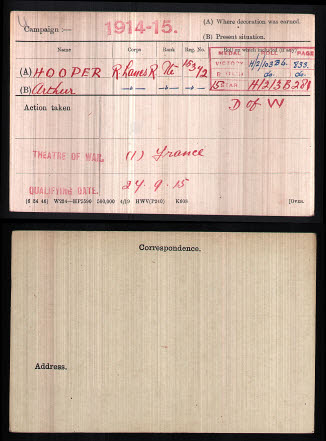 Campaign :— 1914-15. (A) Where decoration was earned.
(B) Present situation.
Name Corps Rank Reg. No. Roll on which included (if any)
MEDAL ROLL PAGE
(A) HOOPER R Lancs R Pte 15342 VICTORY H/2/103B6. 833.
(B) Arthur —"— —"— do. do.
15 STAR H/2/3B 281
Action taken D of W
THEATRE OF WAR. (1) France
QUALIFYING DATE. 24.9.15
[6 24 46] W234—HP5590 500,000 4/19 HWV(P240) K608 [Over.
Correspondence.
Address.